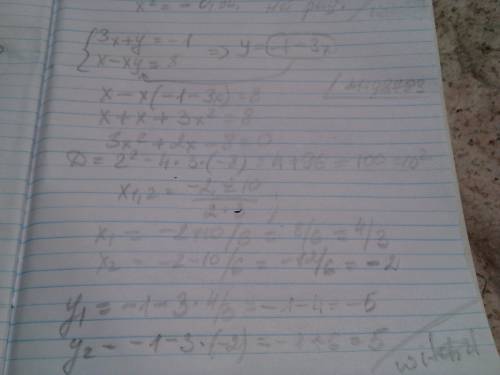 3x+y=-1 => y=-1-3x
x-xy=8
x-x(-1-3x)=8
x+x+3x²=8
3x²+2x-8=0
D=2²-4·3·(-8)=4+96=100=10²
x₁,₂=(-2±10)/(2·3);
x₁=-2+10/6=8/6=4/3
x₂=-2-10/6=-12/6=-2
y₁=-1-3·4/3=-1-4=-5
y₂=-1-3·(-2)=-1+6=5